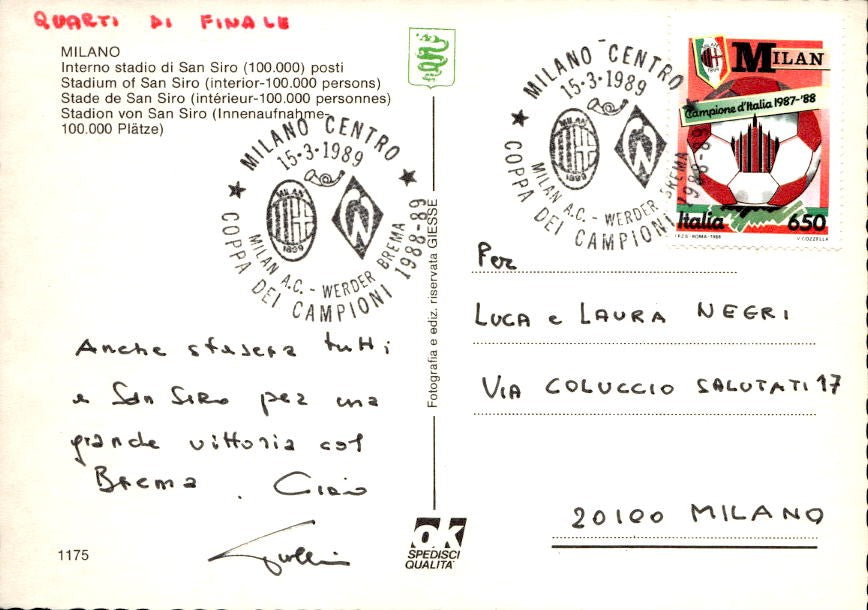 QUARTI DI FINALE
MILANO
Interno stadio di San Siro (100.000) posti
Stadium of San Siro (interior-100.000 persons)
Stade de San Siro (intérieur-100.000 personnes)
Stadion von San Siro (Innenaufnahme-
100.000 Plätze)
MILANO CENTRO
15-3-1989
MILAN
1899
MILAN A.C. - WERDER BREMA
COPPA DEI CAMPIONI 1988-89
MILANO CENTRO
15-3-1989
MILAN
1899
MILAN A.C. - WERDER BREMA
COPPA DEI CAMPIONI 1988-89
MILAN
Campione d'Italia 1987-'88
Italia 650
I.P.Z.S.-ROMA-1988 V.COZZELLA
Anche stasera tutti
a San SIRO per una
grande vittoria col
Brema. Ciao
Fotografia e ediz. riservata GIESSE
Per
LUCA e LAURA NEGRI
VIA COLUCCIO SALUTATI 17
20100 MILANO
1175
ok
SPEDISCI
QUALITA'